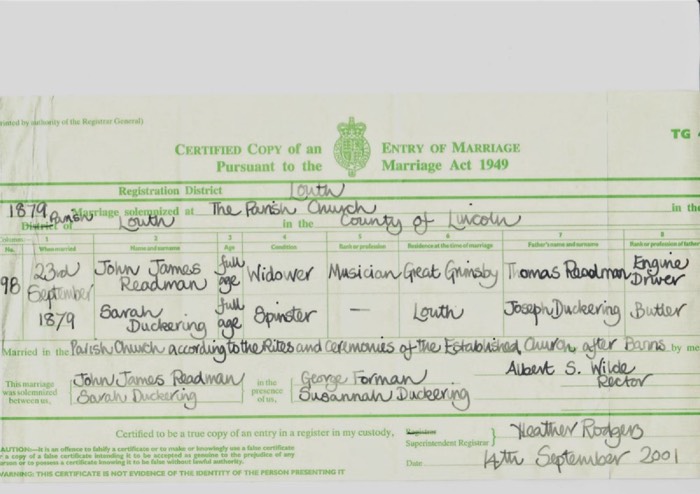 rinted by authority of the Registrar General)
CERTIFIED COPY of an ENTRY OF MARRIAGE
Pursuant to the Marriage Act 1949
TG
Registration District Louth
1879 Marriage solemnized at The Parish Church in the
District of Parish Louth in the County of Lincoln
Columns 1 2 3 4 5 6 7 8
No. When married Name and surname Age Condition Rank or profession Residence at the time of marriage Father's name and surname Rank or profession of father
98 23rd September 1879 John James Readman full age Widower Musician Great Grimsby Thomas Readman Engine Driver
Sarah Duckering full age Spinster — Louth Joseph Duckering Butler
Married in the Parish Church according to the Rites and Ceremonies of the Established Church after Banns by me
Albert S. Wilde
Rector
This marriage was solemnized between us, John James Readman Sarah Duckering in the presence of us, George Forman Susannah Duckering
Certified to be a true copy of an entry in a register in my custody,
Registrar
Superintendent Registrar } Heather Rodgers
Date 14th September 2001
AUTION:—It is an offence to falsify a certificate or to make or knowingly use a false certificate
r a copy of a false certificate intending it to be accepted as genuine to the prejudice of any
erson or to possess a certificate knowing it to be false without lawful authority.
WARNING: THIS CERTIFICATE IS NOT EVIDENCE OF THE IDENTITY OF THE PERSON PRESENTING IT